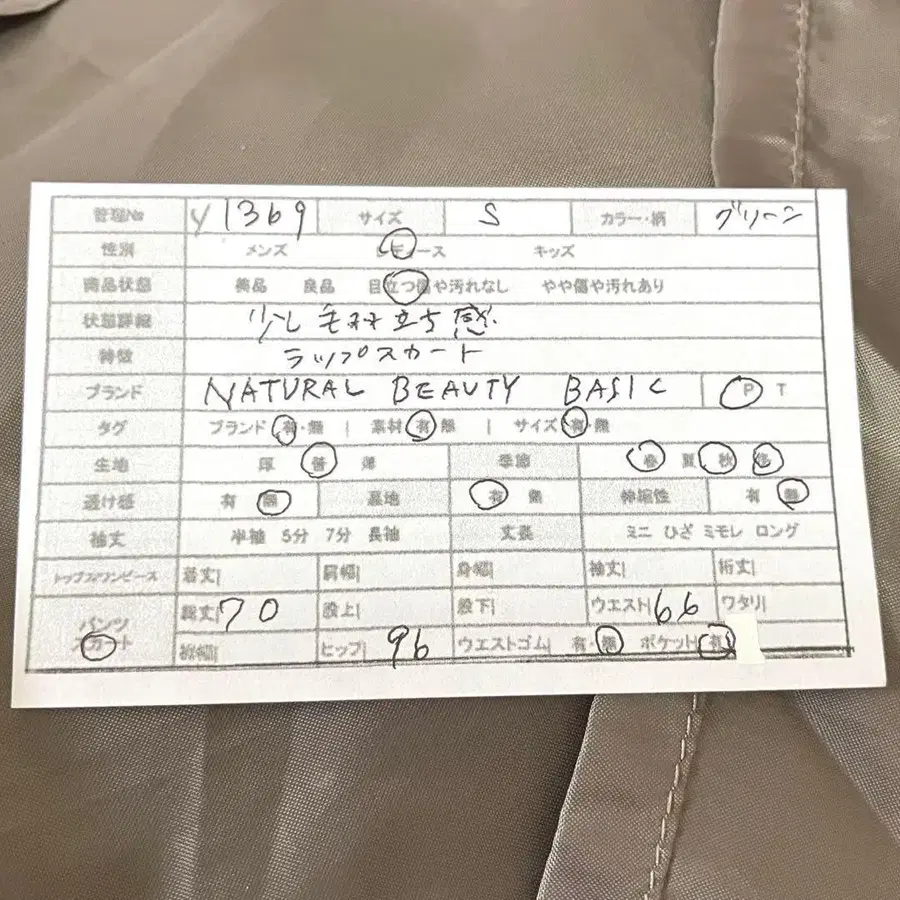 管理No y1369 サイズ S カラー・柄 グリーン
性別 メンズ レディース キッズ
商品状態 美品 良品 目立つ傷や汚れなし やや傷や汚れあり
状態詳細 少し毛羽立ち感.
特徴 ラップスカート
ブランド NATURAL BEAUTY BASIC P T
タグ ブランド 有・無 | 素材 有 無 | サイズ 有・無
生地 厚 普 薄 季節 春 夏 秋 冬
透け感 有 無 裏地 有 無 伸縮性 有 無
袖丈 半袖 5分 7分 長袖 丈長 ミニ ひざ ミモレ ロング
トップス/ワンピース 着丈| 肩幅| 身幅| 袖丈| 裄丈|
パンツ スカート 総丈| 70 股上| 股下| ウエスト| 66 ワタリ|
裾幅| ヒップ| 96 ウエストゴム| 有・無 ポケット| 有